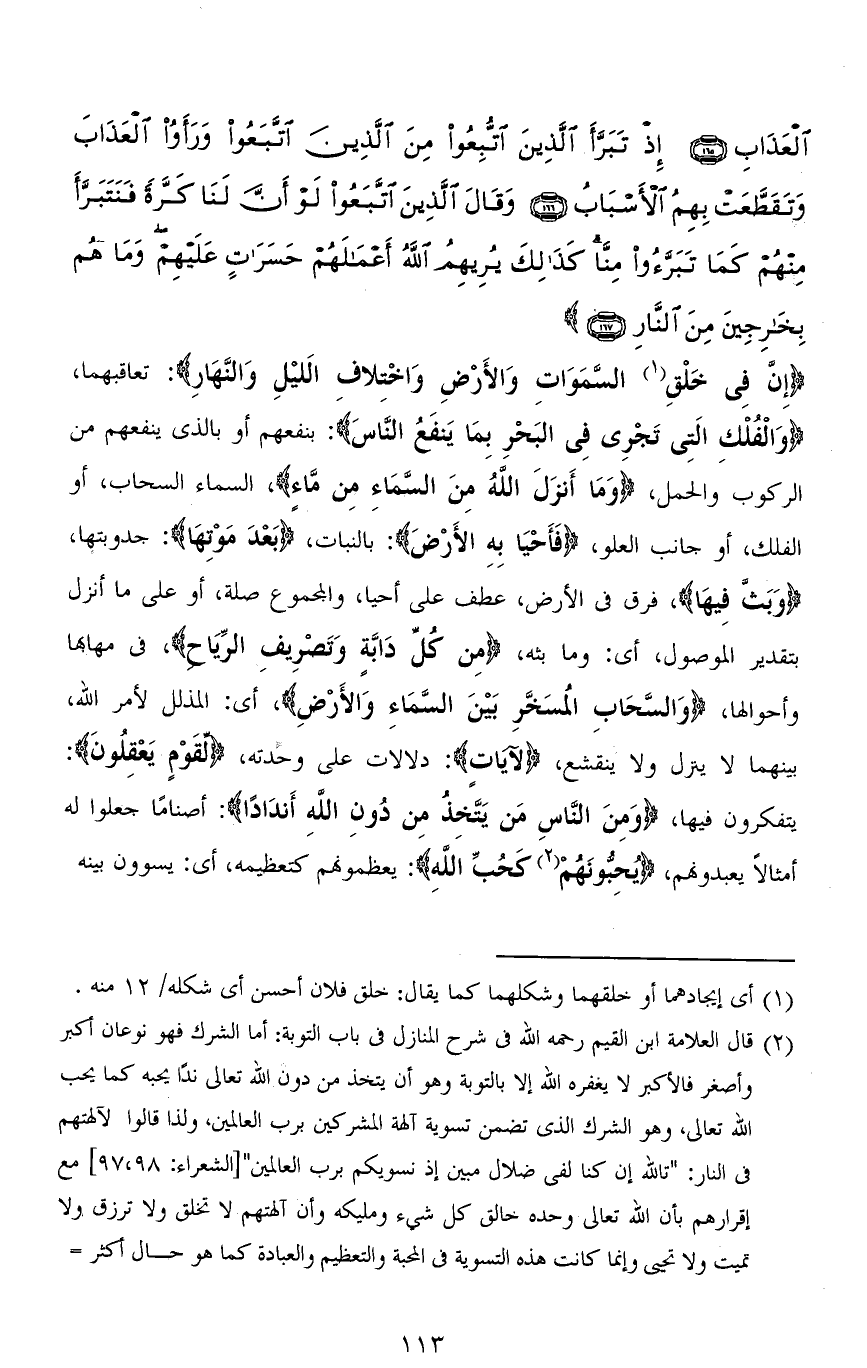 ٱلْعَذَابِ ﴿١٦٥﴾ إِذْ تَبَرَّأَ ٱلَّذِينَ ٱتُّبِعُوا۟ مِنَ ٱلَّذِينَ ٱتَّبَعُوا۟ وَرَأَوُا۟ ٱلْعَذَابَ
وَتَقَطَّعَتْ بِهِمُ ٱلْأَسْبَابُ ﴿١٦٦﴾ وَقَالَ ٱلَّذِينَ ٱتَّبَعُوا۟ لَوْ أَنَّ لَنَا كَرَّةً فَنَتَبَرَّأَ
مِنْهُمْ كَمَا تَبَرَّءُوا۟ مِنَّا ۗ كَذَٰلِكَ يُرِيهِمُ ٱللَّهُ أَعْمَـٰلَهُمْ حَسَرَٰتٍ عَلَيْهِمْ ۖ وَمَا هُم
بِخَـٰرِجِينَ مِنَ ٱلنَّارِ ﴿١٦٧﴾ ﴾
﴿إِنَّ فِى خَلْقِ(١) السَّمَوَاتِ وَالأَرْضِ وَاخْتِلافِ الَليْلِ وَالنَّهَارِ﴾: تعاقبهما،
﴿وَالْفُلْكِ الَتِى تَجْرِى فِى البَحْرِ بِمَا يَنفَعُ النَّاسَ﴾: بنفعهم أو بالذى ينفعهم من
الركوب والحمل، ﴿وَمَا أَنزَلَ اللَّهُ مِنَ السَّمَاءِ مِن مَّاءٍ﴾، السماء السحاب، أو
الفلك، أو جانب العلو، ﴿فَأَحْيَا بِهِ الأَرْضَ﴾: بالنبات، ﴿بَعْدَ مَوْتِهَا﴾: جدوبتها،
﴿وَبَثَّ فِيهَا﴾، فرق فى الأرض، عطف على أحيا، والمجموع صلة، أو على ما أنزل
بتقدير الموصول، أى: وما بثه، ﴿مِن كُلِّ دَابَّةٍ وَتَصْرِيفِ الرِّيَاحِ﴾، فى مهابها
وأحوالها، ﴿وَالسَّحَابِ المُسَخَّرِ بَيْنَ السَّمَاءِ وَالأَرْضِ﴾، أى: المذلل لأمر الله،
بينهما لا ينزل ولا ينقشع، ﴿لآيَاتٍ﴾: دلالات على وحدته، ﴿لِّقَوْمٍ يَعْقِلُونَ﴾:
يتفكرون فيها، ﴿وَمِنَ النَّاسِ مَن يَتَّخِذُ مِن دُونِ اللَّهِ أَندَادًا﴾: أصنامًا جعلوا له
أمثالاً يعبدونهم، ﴿يُحِبُّونَهُمْ(٢) كَحُبِّ اللَّهِ﴾: يعظمونهم كتعظيمه، أى: يسوون بينه
(١) أى إيجادهما أو خلقهما وشكلهما كما يقال: خلق فلان أحسن أى شكله/ ١٢ منه .
(٢) قال العلامة ابن القيم رحمه الله فى شرح المنازل فى باب التوبة: أما الشرك فهو نوعان أكبر
وأصغر فالأكبر لا يغفره الله إلا بالتوبة وهو أن يتخذ من دون الله تعالى ندًا يحبه كما يحب
الله تعالى، وهو الشرك الذى تضمن تسوية آلهة المشركين برب العالمين، ولذا قالوا لآلهتهم
فى النار: "تالله إن كنا لفى ضلال مبين إذ نسويكم برب العالمين"[الشعراء: ٩٧،٩٨] مع
إقرارهم بأن الله تعالى وحده خالق كل شيء ومليكه وأن آلهتهم لا تخلق ولا ترزق ولا
تميت ولا تحيى وإنما كانت هذه التسوية فى المحبة والتعظيم والعبادة كما هو حـــال أكثر =
١١٣